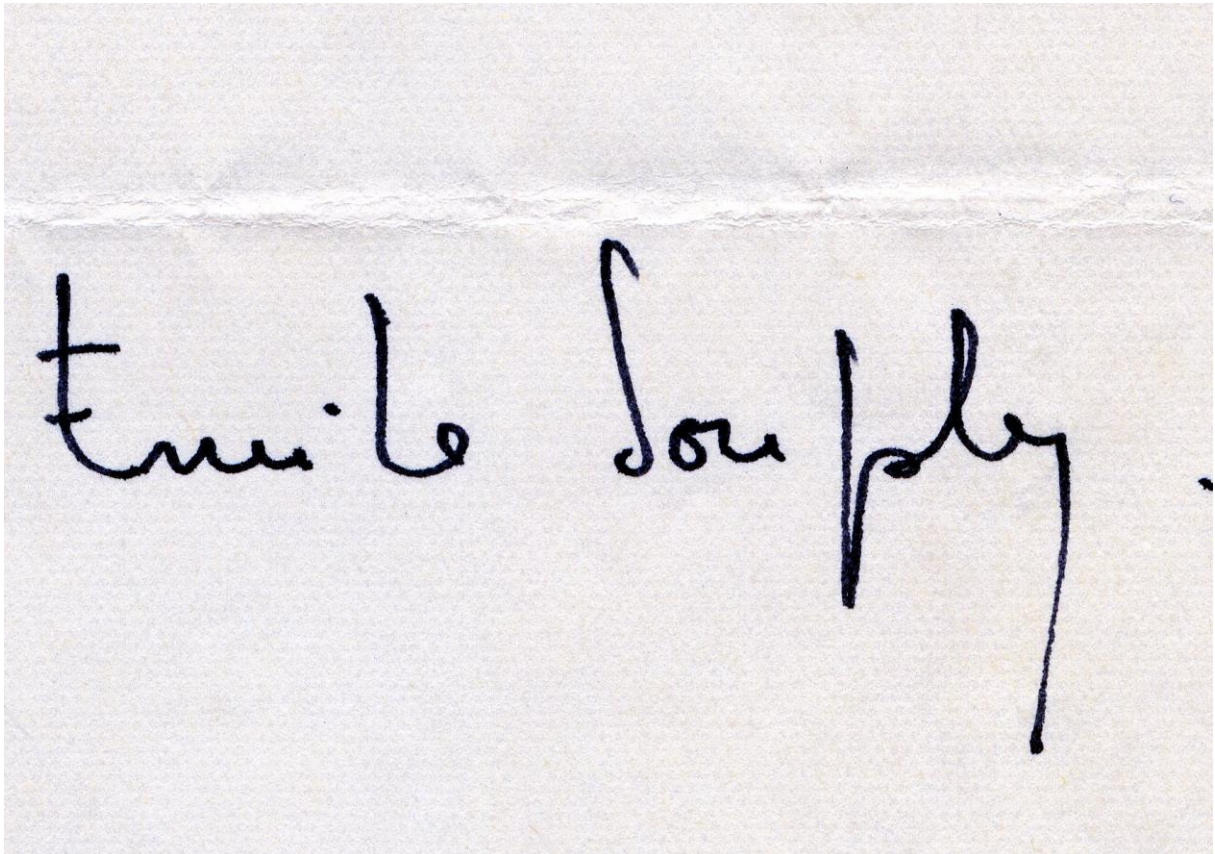 Emile Souply.